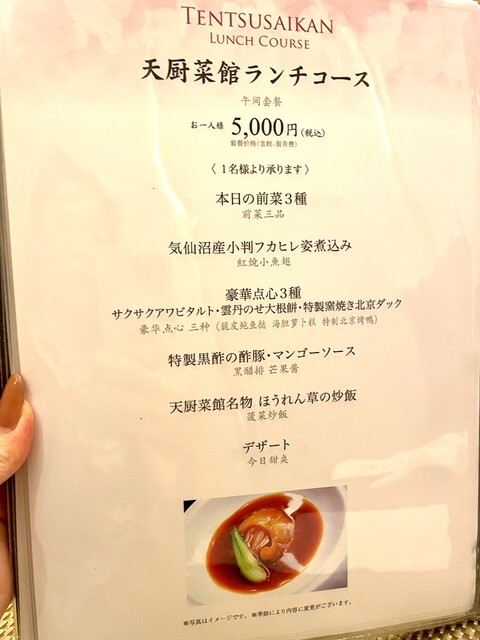 TENTSUSAIKAN
LUNCH COURSE
天厨菜館ランチコース
午间套餐
お一人様 5,000円(税込)
套餐价格(含税、服务费)
〈 1名様より承ります 〉
本日の前菜3種
前菜三品
気仙沼産小判フカヒレ姿煮込み
紅焼小魚翅
豪華点心3種
サクサクアワビタルト・雲丹のせ大根餅・特製窯焼き北京ダック
豪华点心 三种 (脆皮鲍鱼挞 海胆萝卜糕 特制北京烤鸭)
特製黒酢の酢豚・マンゴーソース
黑醋排 芒果酱
天厨菜館名物 ほうれん草の炒飯
菠菜炒饭
デザート
今日甜尖
※写真はイメージです。※季節により内容に変更がございます。